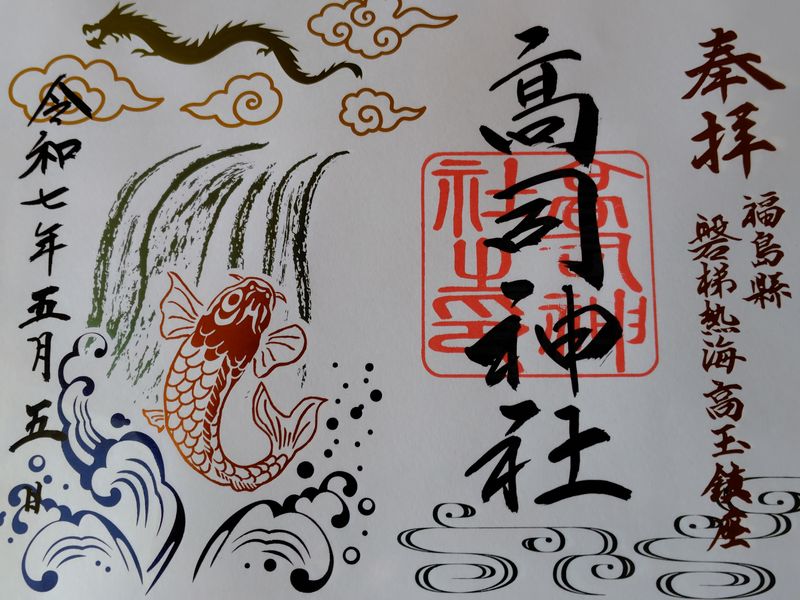 奉拝
福島縣
磐梯熱海高玉鎮座
高司神社
高司神
社之印
令和七年五月五日